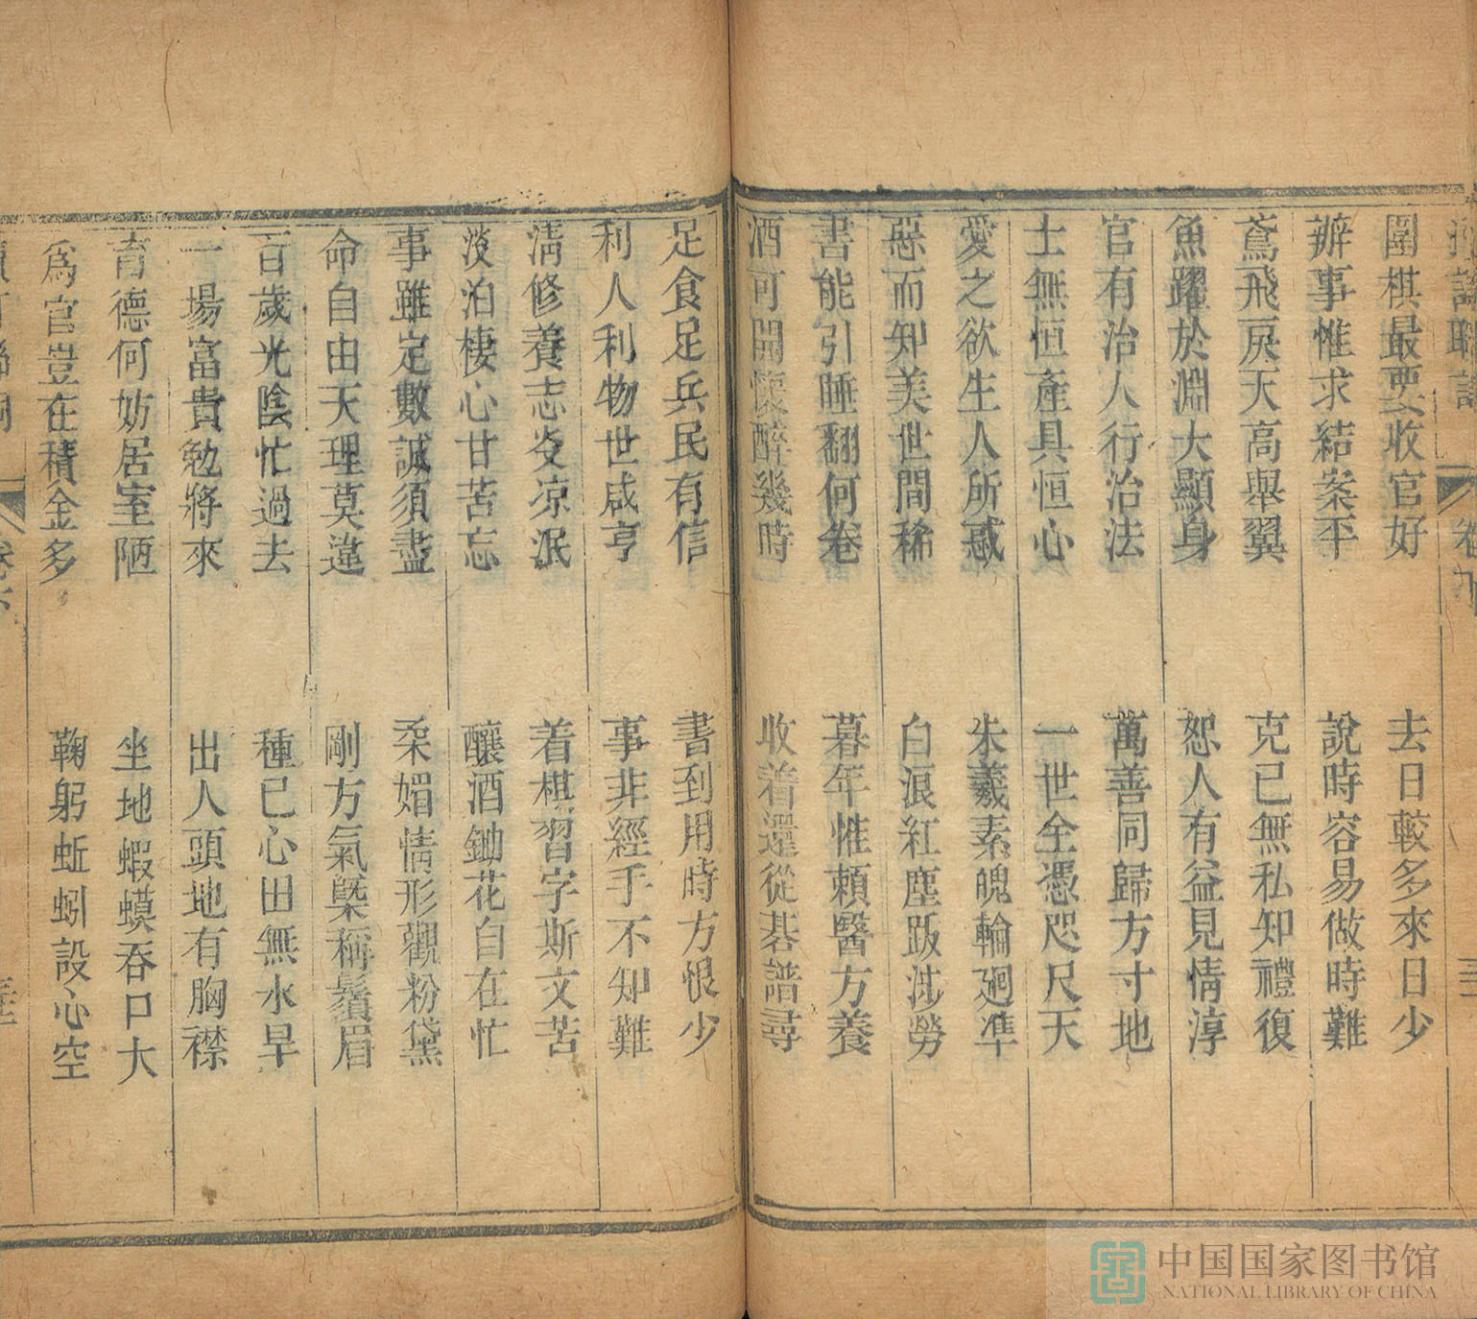 圍棋最要收官好 去日較多來日少
辦事惟求結案平 說時容易做時難
鳶飛戾天高舉翼 克已無私知禮復
魚躍於淵大顯身 恕人有益見情淳
官有治人行治法 萬善同歸方寸地
士無恒產具恒心 一世全憑咫尺天
愛之欲生人所惑 朱羲素魄輪廻準
惡而知美世間稀 白浪紅塵跋涉勞
書能引睡翻何卷 暮年惟賴醫方養
酒可開懷醉幾時 收着還從碁譜尋
足食足兵民有信 書到用時方恨少
利人利物世咸亨 事非經手不知難
清修養志炎凉泯 着棋習字斯文苦
淡泊棲心甘苦忘 釀酒鋤花自在忙
事雖定數誠須盡 柔媚情形觀粉黛
命自由天理莫違 剛方氣槩稱鬚眉
百歲光陰忙過去 種已心田無水旱
一場富貴勉將來 出人頭地有胸襟
育德何妨居室陋 坐地蝦蟆吞口大
爲官豈在積金多 鞠躬蚯蚓設心空
中国国家图书馆
NATIONAL LIBRARY OF CHINA